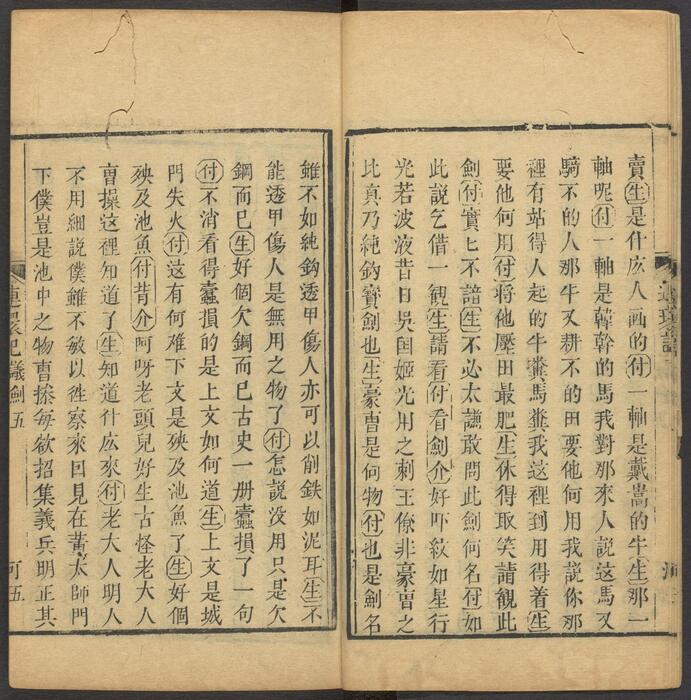 賣生是什庅人画的付一軸是戴嵩的牛生那一
軸呢付一軸是韓幹的馬我對那來人說這馬又
騎不的人那牛又耕不的田要他何用我說你那
裡有站得人起的牛糞馬糞我这裡到用得着生
要他何用付将他壅田最肥生休得取笑請觀此
劍付實匕不諳生不必太謙敢問此劍何名付如
此說乞借一観生請看付看劍介好吓紋如星行
光若波液昔日吳囯姬光用之刺王僚非豪曺之
比真乃純鈎寳劍也生豪曺是何物付也是劍名
雖不如純鈎透甲傷人亦可以削鉄如泥耳生不
能透甲傷人是無用之物了付怎說没用只是欠
鋼而已生好個欠鋼而已古史一册蠹損了一句
付不消看得蠹損的是上文如何道生上文是城
門失火付这有何难下文是殃及池魚了生好個
殃及池魚付背介阿呀老頭兒好生古怪老大人
曺操这裡知道了生知道什庅來付老大人明人
不用細說僕雖不敏以徃察來囙見在黃太師門
下僕豈是池中之物曺操每欲招集義兵明正其
連環記 議劍 五
可五